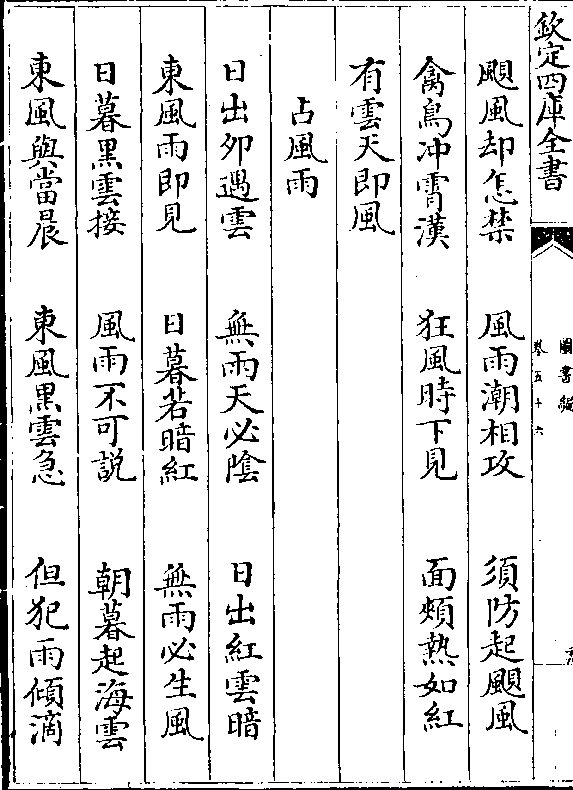 欽定四庫全書
圖書編
卷五十六
颶風却怎禁　風雨潮相攻　須防起颶風
禽鳥冲霄漢　狂風時下見　面頰熱如紅
有雲天即風
占風雨
日出夘遇雲　無雨天必隂　日出紅雲暗
東風雨即見　日暮若暗紅　無雨必生風
日暮黑雲接　風雨不可説　朝暮起海雲
東風與當晨　東風黒雲急　但犯雨傾滴